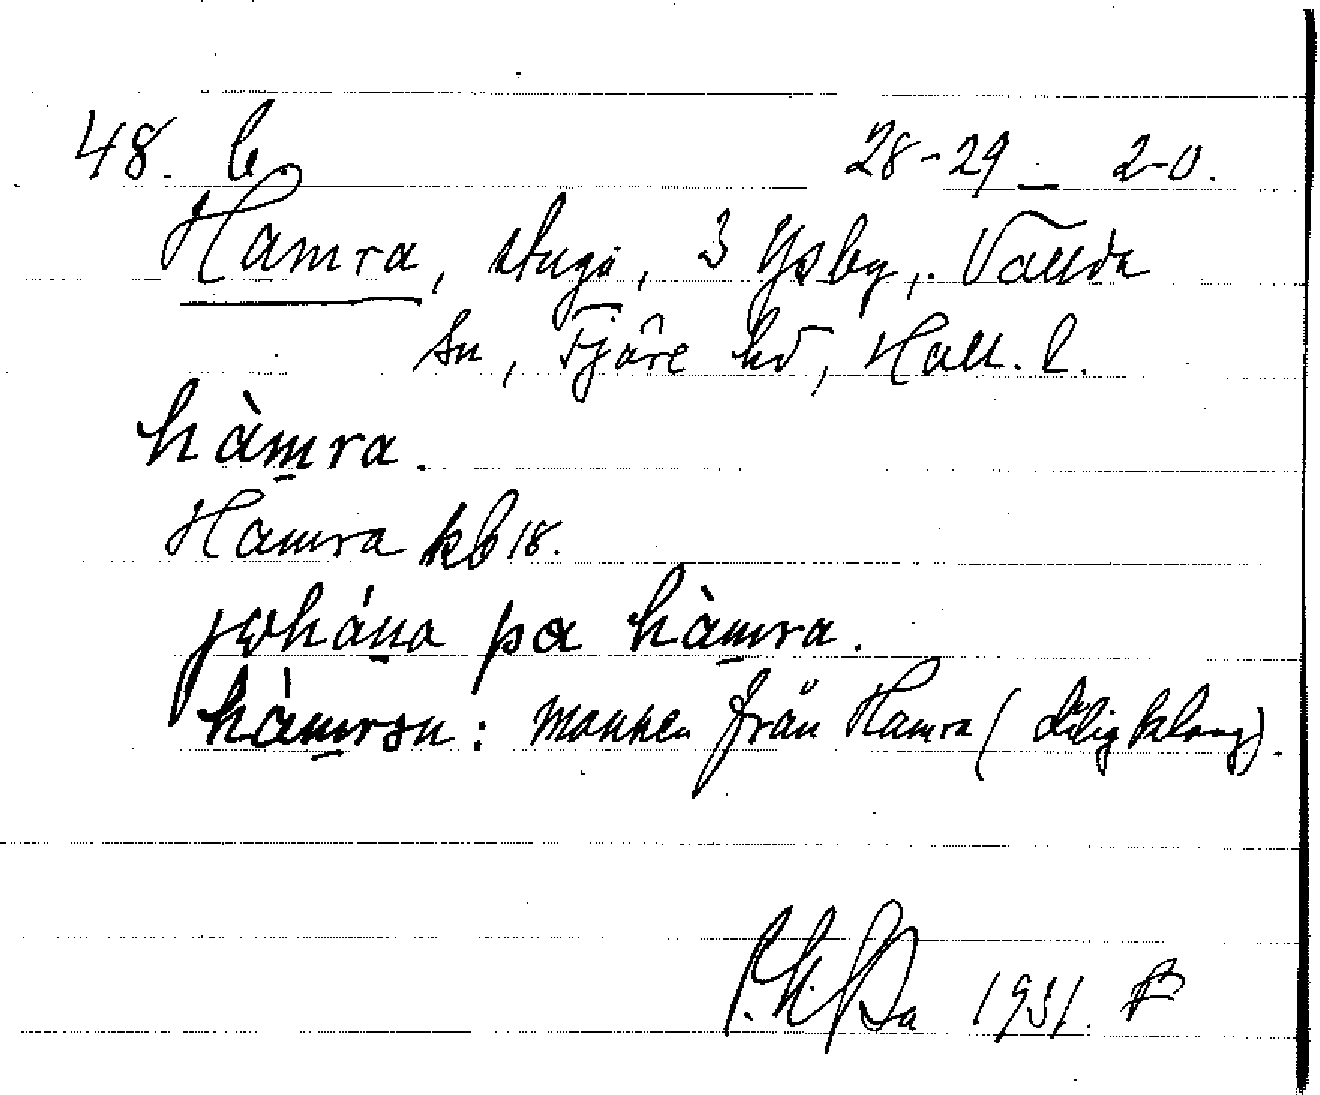 48. C. 28-29 – 2-0.
Hamra, stuga, 3 Ysby, Vallda
sn, Fjäre hd, Hall. l.
hàmra.
Hamra kb 18.
johána pa hàmra.
hàmrsn: mannen från Hamra (dålig klang).
1931.